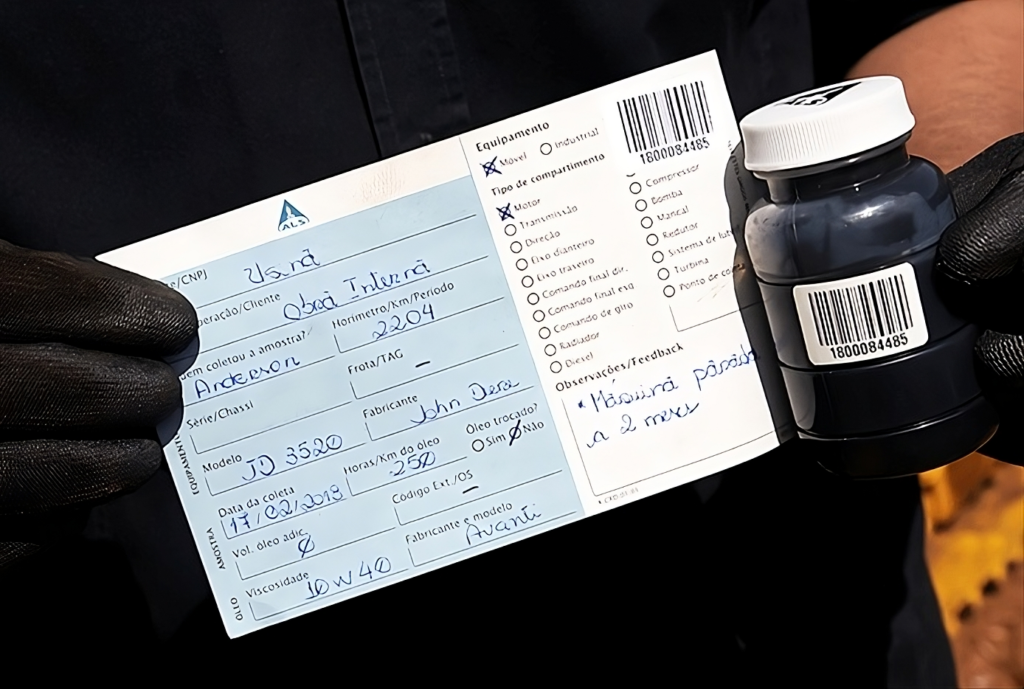 ALS
e/CNPJ
Usina
peração/Cliente
Obra Interna
em coletou a amostra?
Anderson
Horímetro/Km/Período
2204
Série/Chassi
Frota/TAG
—
Modelo
JD 3520
Fabricante
John Dere
Data da coleta
17/02/2018
Horas/Km do óleo
250
Óleo trocado?
Sim Não
Vol. óleo adic
0
Código Ext./OS
—
Viscosidade
10W40
Fabricante e modelo
Avanti
EQUIPAMENTO
AMOSTRA
ÓLEO
Equipamento
Móvel Industrial
Tipo de compartimento
Motor
Transmissão
Direção
Eixo dianteiro
Eixo traseiro
Comando final dir.
Comando final esq
Comando de giro
Radiador
Diesel
1800084485
Compressor
Bomba
Mancal
Redutor
Sistema de
Turbina
Ponto de
Observações/Feedback
* Máquina parada
a 2 meses
ALS
1800084485